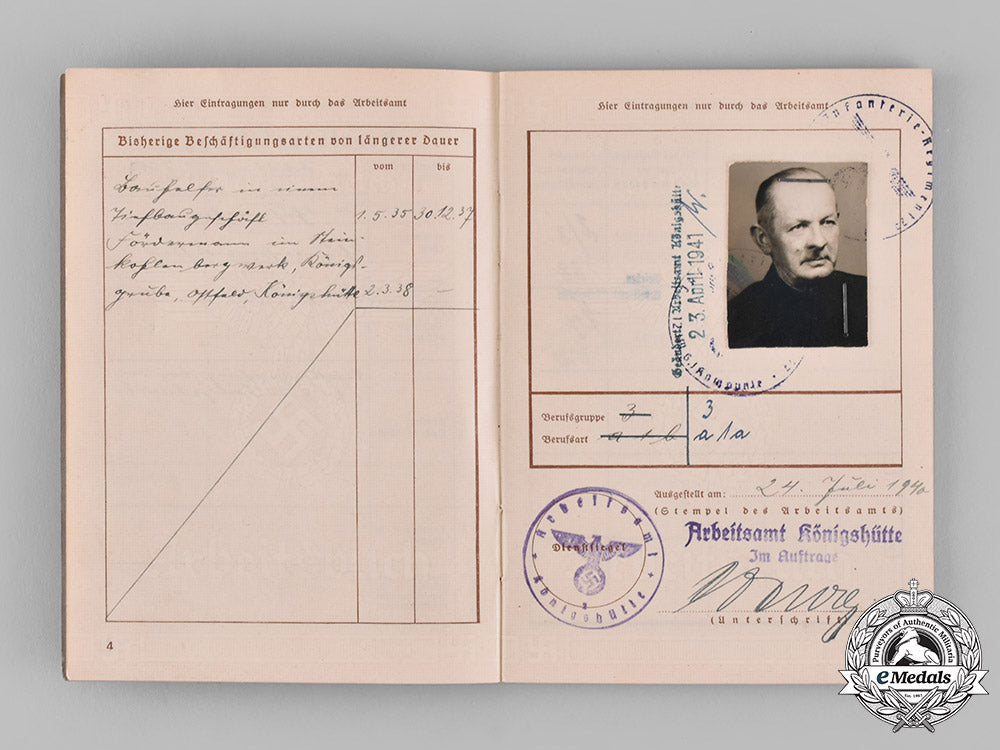 Hier Eintragungen nur durch das Arbeitsamt
Bisherige Beschäftigungsarten von längerer Dauer
vom bis
Bauhelfer in einem
Tiefbaugeschäft 1.5.35 30.12.37
Fördermann im Stein-
kohlenbergwerk, Königs-
grube, Ostfeld, Königshütte 2.3.38 —
4
Hier Eintragungen nur durch das Arbeitsamt
Infanterie-Regiment
Geändert! Arbeitsamt Königshütte
23. April 1941
Kompanie
Berufsgruppe 3 3
Berufsart a 1 b a 1a
Ausgestellt am: 24. Juli 1940
(Stempel des Arbeitsamts)
Arbeitsamt Königshütte
Im Auftrage
(Unterschrift)
Arbeitsamt
Dienstsiegel
Königshütte
Purveyors of Authentic Militaria
eMedals